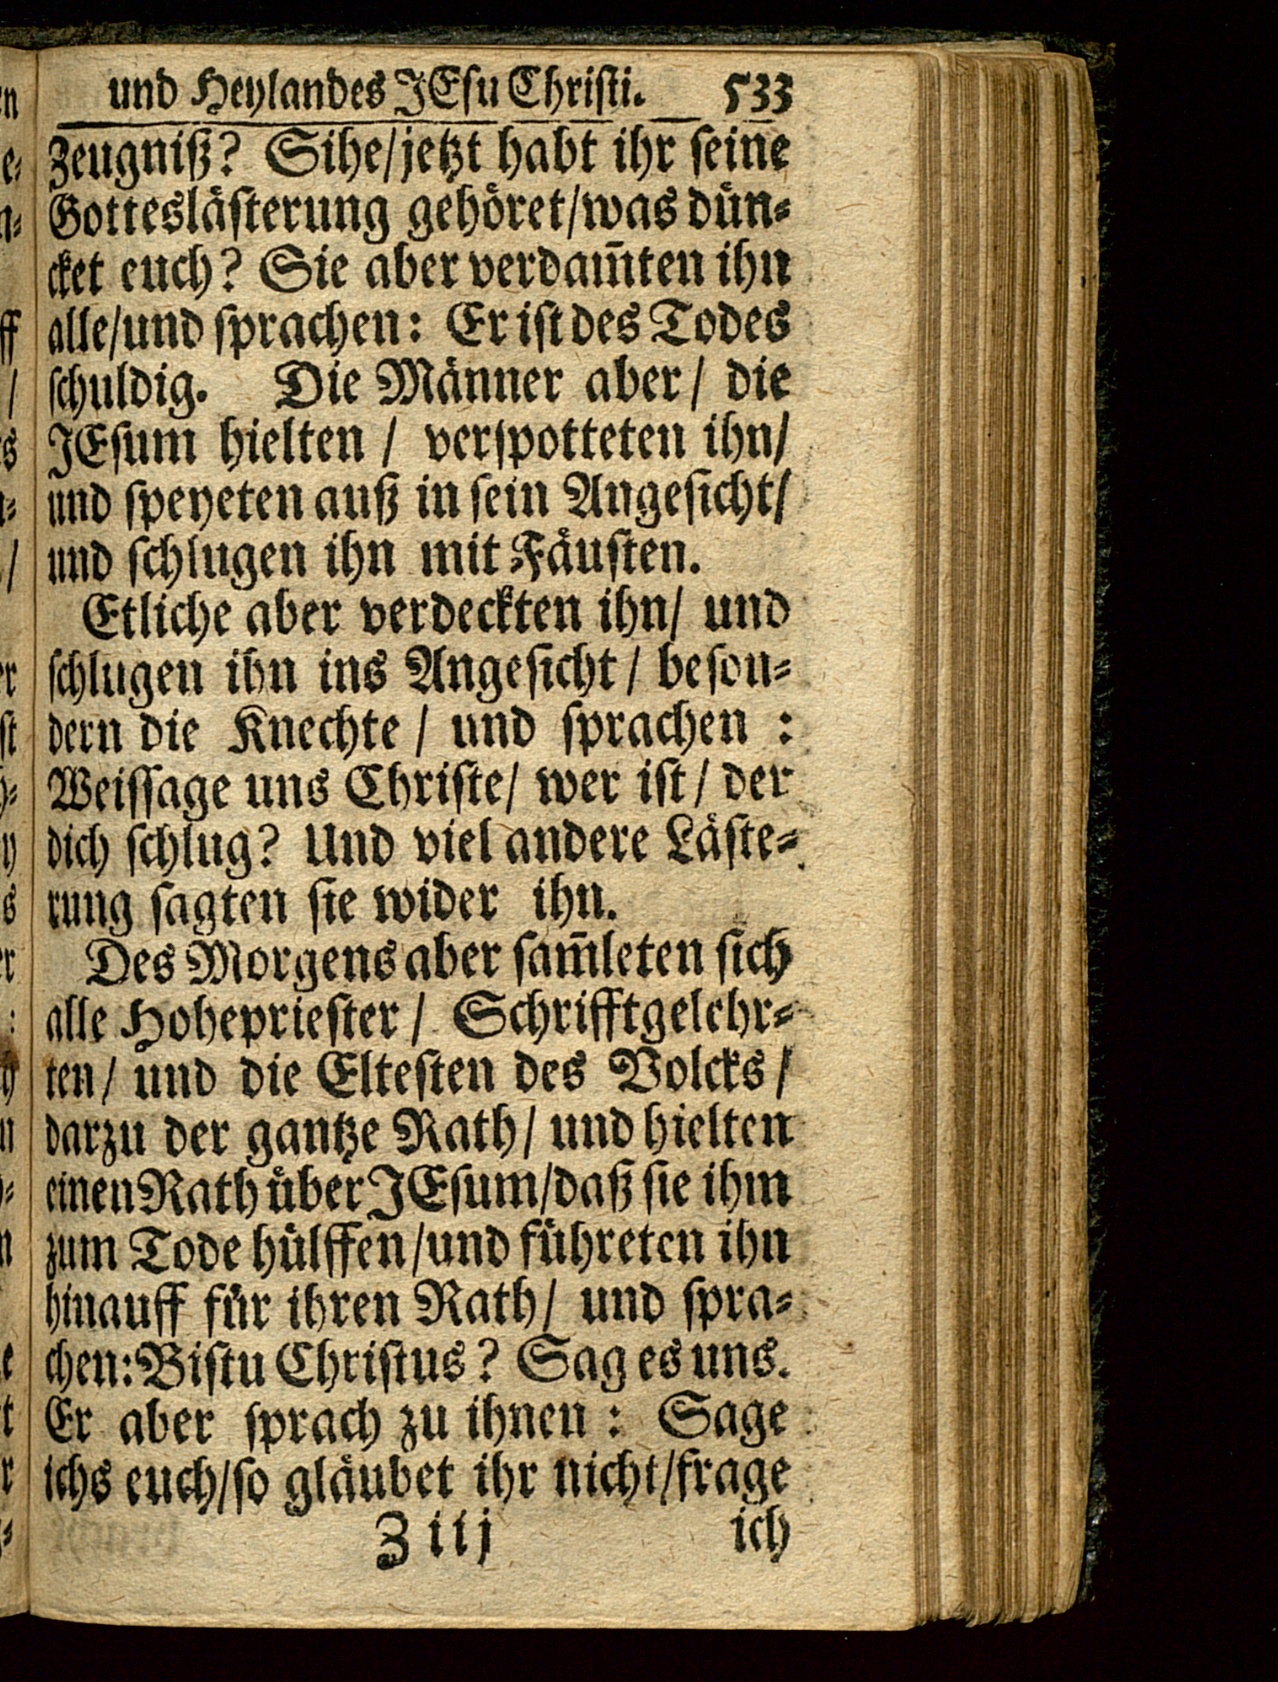 und Heylandes JEsu Christi. 533
Zeugniß? Sihe/jetzt habt ihr seine
Gotteslästerung gehöret/was dün-
cket euch? Sie aber verdam̃ten ihn
alle/und sprachen: Er ist des Todes
schuldig. Die Männer aber/ die
JEsum hielten / verspotteten ihn/
und speyeten auß in sein Angesicht/
und schlugen ihn mit Fäusten.
Etliche aber verdeckten ihn/ und
schlugen ihn ins Angesicht / beson-
dern die Knechte / und sprachen :
Weissage uns Christe/ wer ist/ der
dich schlug? Und viel andere Läste-
rung sagten sie wider ihn.
Des Morgens aber sam̃leten sich
alle Hohepriester / Schrifftgelehr-
ten/ und die Eltesten des Volcks/
darzu der gantze Rath/ und hielten
einen Rath über JEsum/daß sie ihm
zum Tode hülffen/und führeten ihn
hinauff für ihren Rath/ und spra-
chen: Bistu Christus? Sag es uns.
Er aber sprach zu ihnen : Sage
ichs euch/so gläubet ihr nicht/frage
Z iij ich